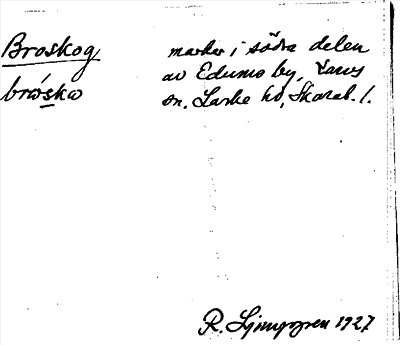 Broskog
bróskω
marker i södra delen
av Edums by, Larvs
sn. Laske hd, Skarab. l.
R. Ljunggren 1927